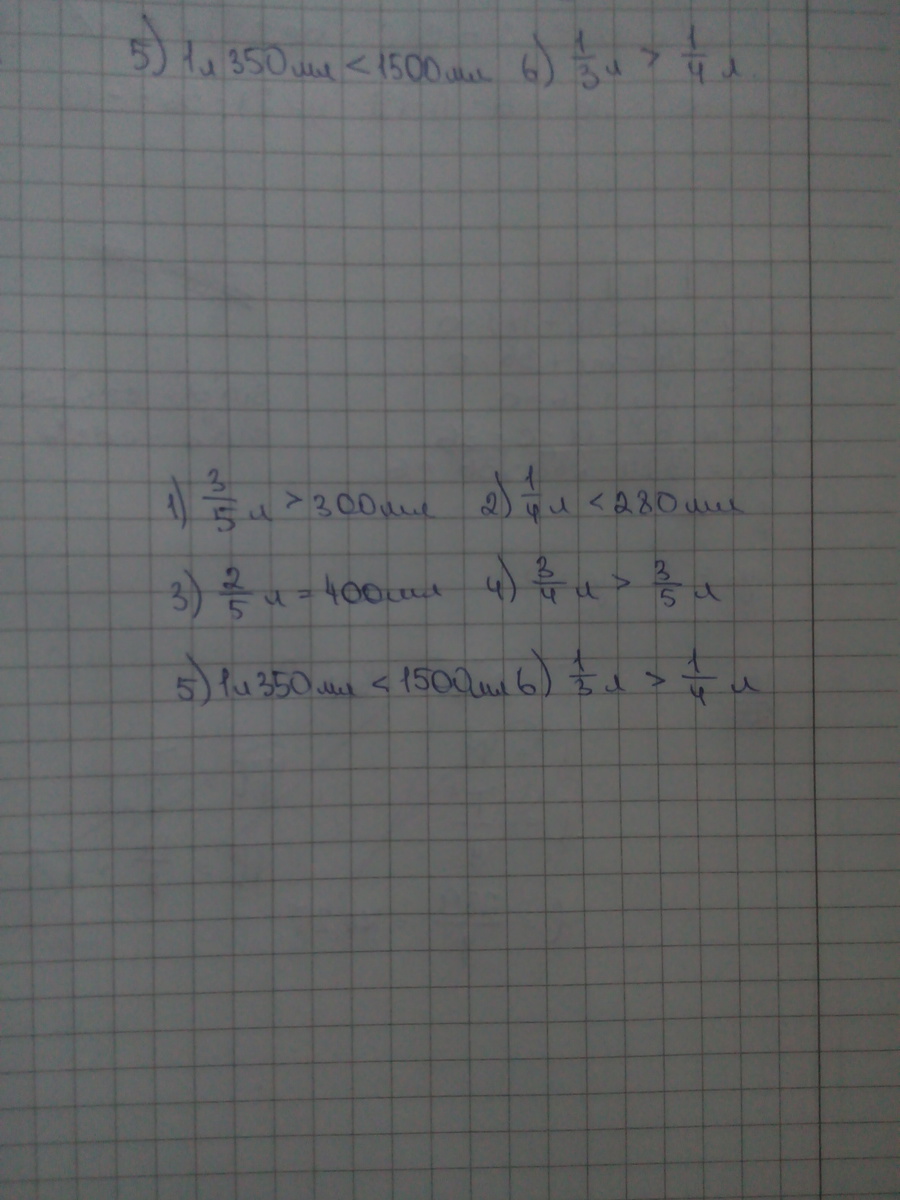 5) 1л 350 мл < 1500 мл 6) 1/3 л > 1/4 л
1) 3/5 л > 300 мл 2) 1/4 л < 280 мл
3) 2/5 л = 400 мл 4) 3/4 л > 3/5 л
5) 1л 350 мл < 1500 мл 6) 1/3 л > 1/4 л